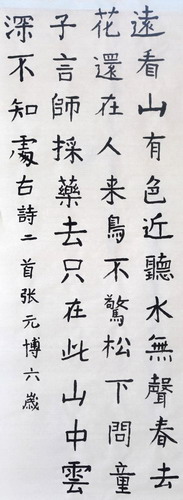 遠看山有色近聽水無聲春去
花還在人来鳥不驚松下問童
子言師採藥去只在此山中雲
深不知處古詩二首张元博六歳